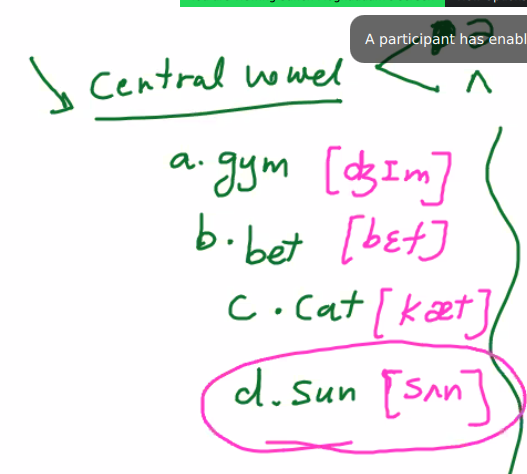 A participant has enabl
Central vowel ə
ʌ
a. gym [ʤɪm]
b. bet [bɛt]
c. cat [kæt]
d. sun [sʌn]